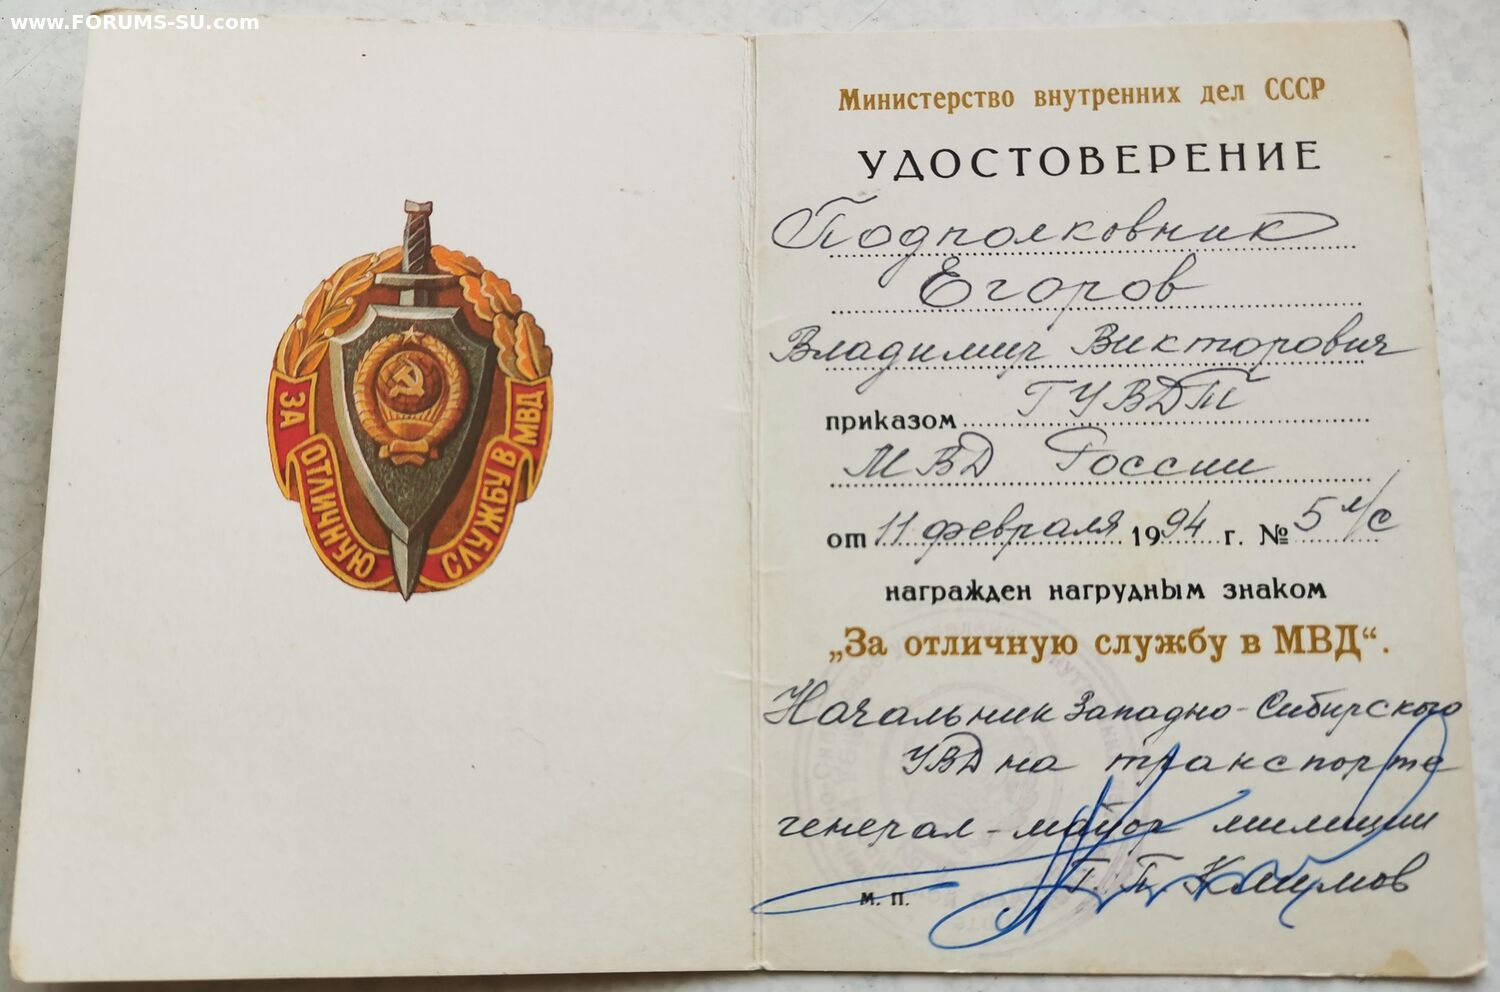 www.FORUMS-SU.com
ЗА ОТЛИЧНУЮ СЛУЖБУ В МВД
Министерство внутренних дел СССР
УДОСТОВЕРЕНИЕ
Подполковник
Егоров
Владимир Викторович
приказом ГУВДТ
МВД России
от 11 февраля 1994 г. № 5 л/с
награжден нагрудным знаком
„За отличную службу в МВД“.
Начальник Западно-Сибирского
УВД на транспорте
генерал-майор милиции
Г. П. Климов
М. П.